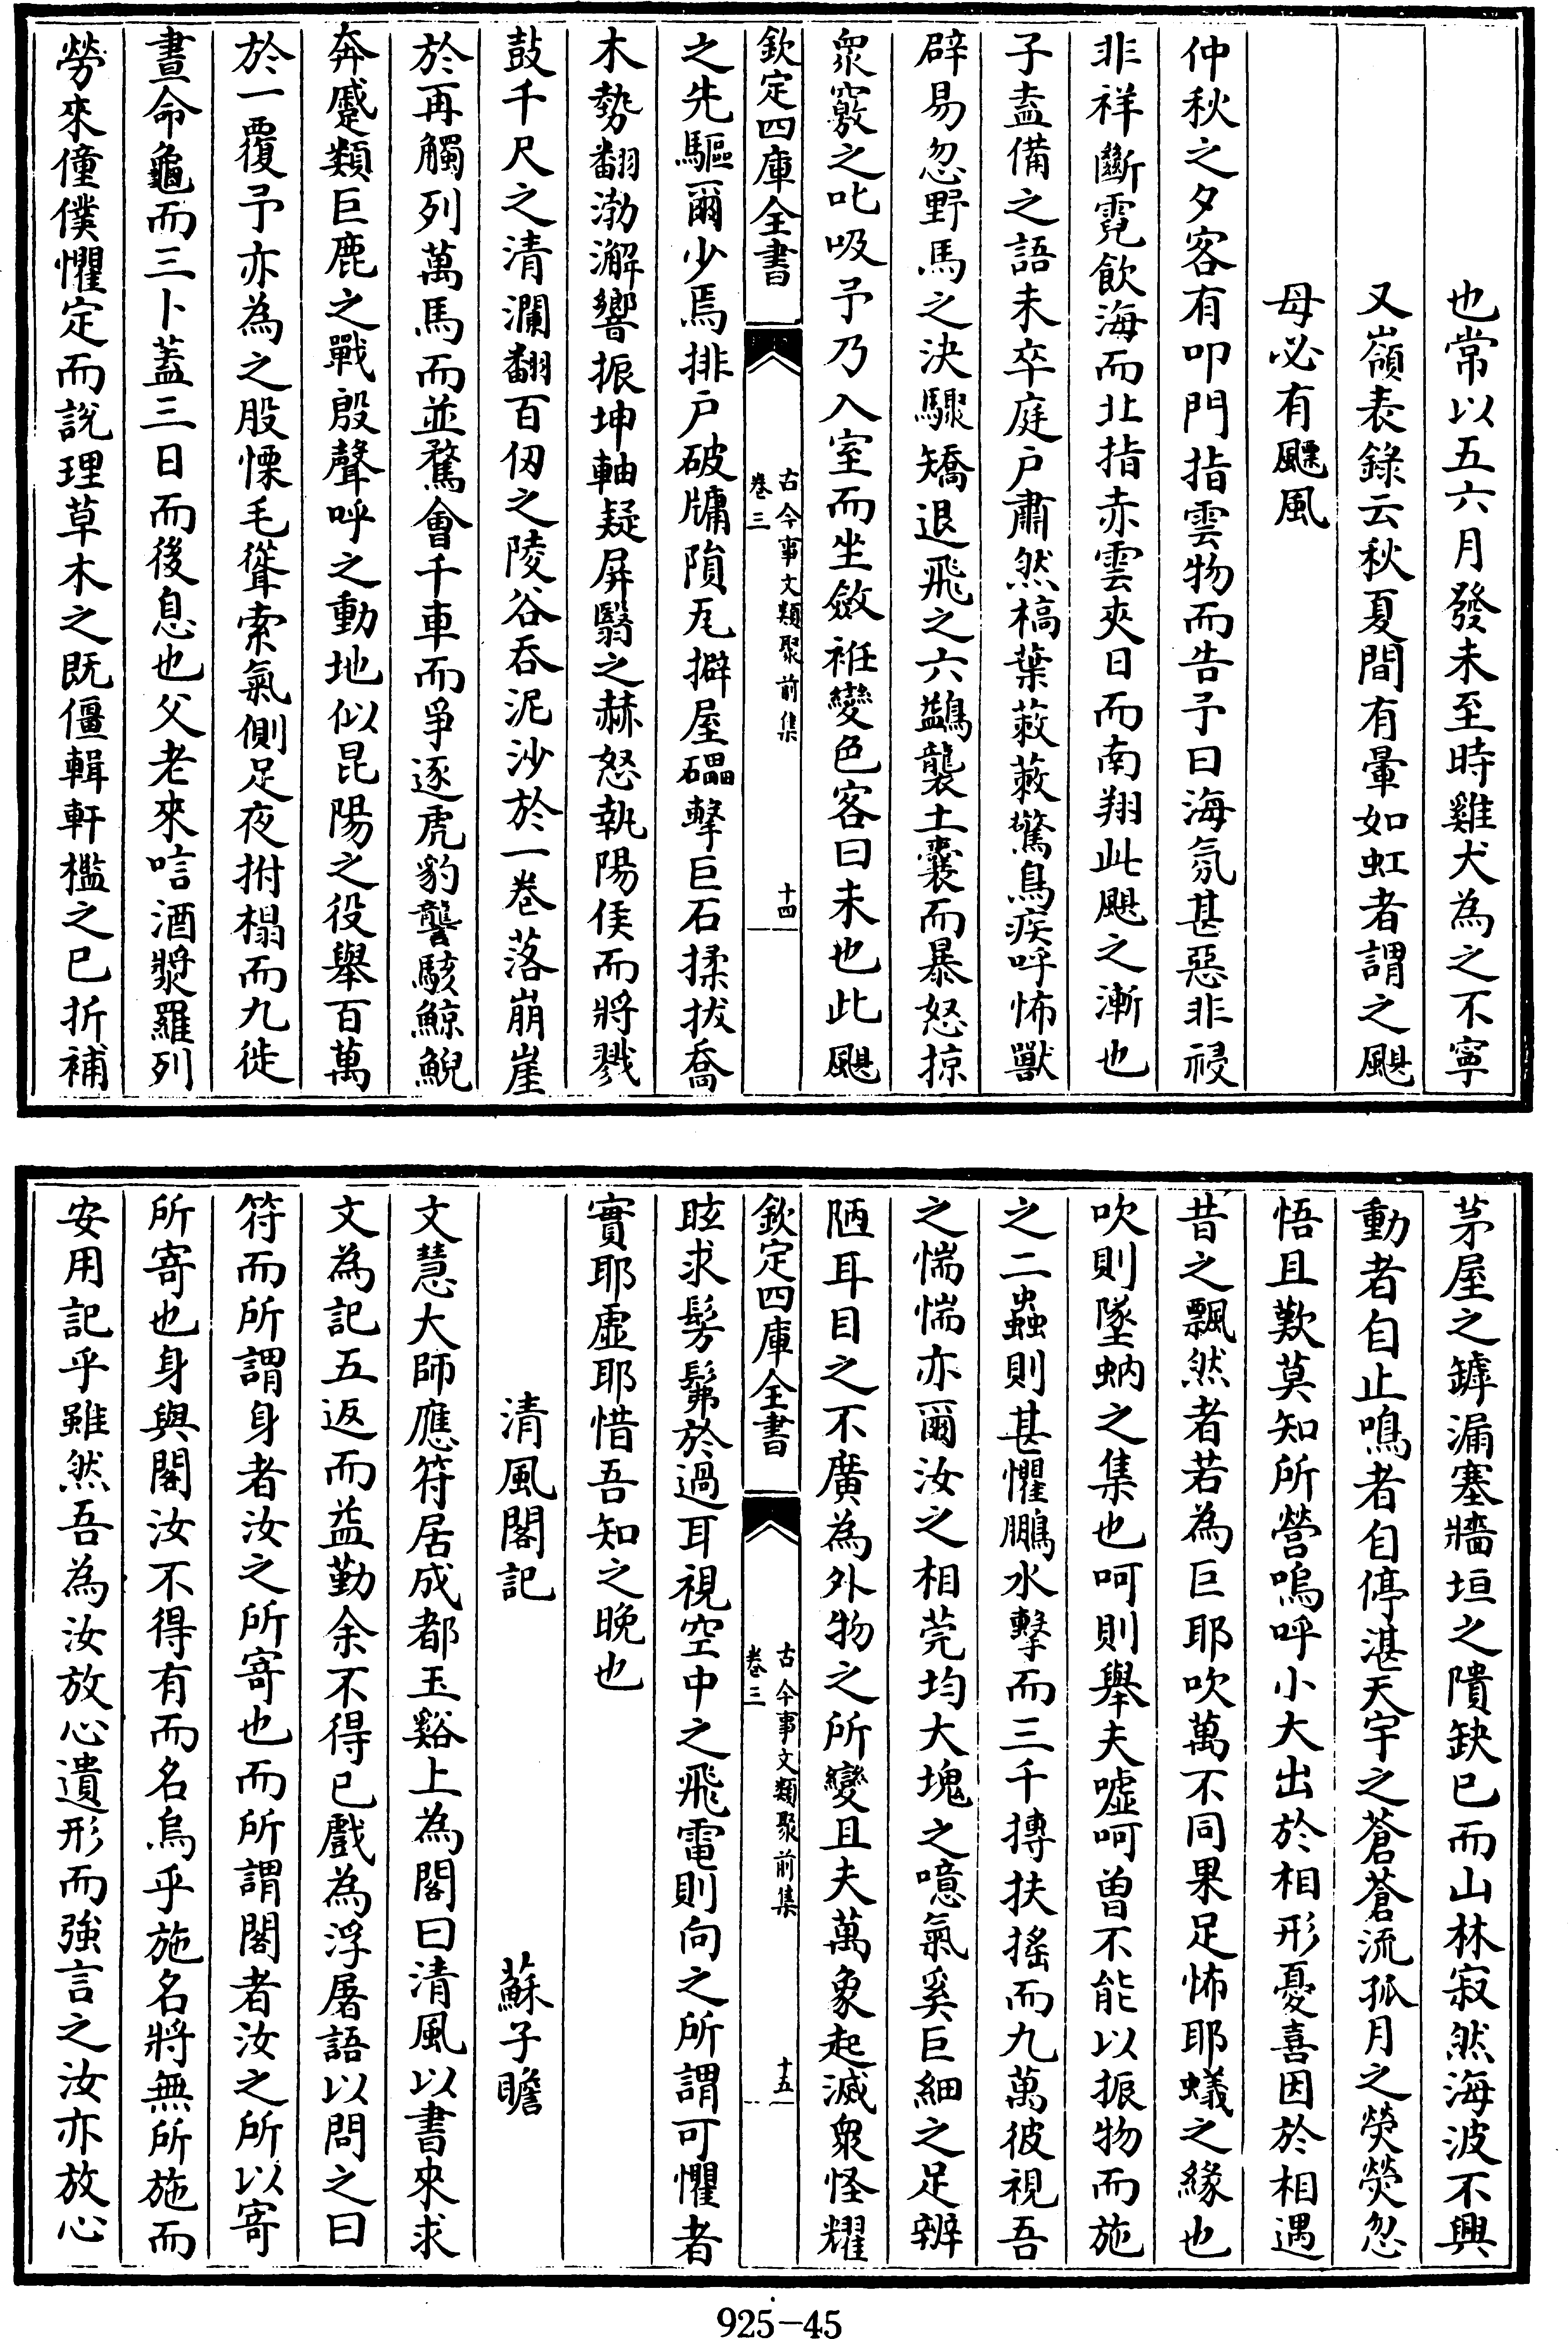 也常以五六月發未至時雞犬為之不寧
又嶺表錄云秋夏間有暈如虹者謂之颶
母必有颶風
仲秋之夕客有叩門指雲物而告予曰海氛甚惡非祲
非祥斷霓飲海而北指赤雲夾日而南翔此颶之漸也
子盍備之語未卒庭户肅然槁葉蔌蔌驚鳥疾呼怖獸
辟易忽野馬之決驟矯退飛之六鷁襲土囊而暴怒掠
衆竅之叱吸予乃入室而坐斂袵變色客曰未也此颶
欽定四庫全書
古今事文類聚前集
卷三
十四
之先驅爾少焉排户破牖隕瓦擗屋礧擊巨石揉拔喬
木勢翻渤澥響振坤軸疑屏翳之赫怒執陽侯而將戮
鼓千尺之清瀾翻百仞之陵谷吞泥沙於一卷落崩崖
於再觸列萬馬而並騖會千車而爭逐虎豹讋駭鯨鯢
奔蹙類巨鹿之戰殷聲呼之動地似昆陽之役舉百萬
於一覆予亦為之股慄毛聳索氣側足夜拊榻而九徙
晝命龜而三卜蓋三日而後息也父老來唁酒漿羅列
勞來僮僕懼定而說理草木之既僵輯軒檻之已折補
茅屋之罅漏塞牆垣之隤缺已而山林寂然海波不興
動者自止鳴者自停湛天宇之蒼蒼流孤月之熒熒忽
悟且歎莫知所營嗚呼小大出於相形憂喜因於相遇
昔之飄然者若為巨耶吹萬不同果足怖耶蟻之緣也
吹則墜蚋之集也呵則舉夫噓呵曾不能以振物而施
之二蟲則甚懼鵬水擊而三千摶扶搖而九萬彼視吾
之惴惴亦爾汝之相莞均大塊之噫氣奚巨細之足辨
陋耳目之不廣為外物之所變且夫萬象起滅衆怪耀
欽定四庫全書
古今事文類聚前集
卷三
十五
眩求髣髴於過耳視空中之飛電則向之所謂可懼者
實耶虛耶惜吾知之晚也
清風閣記 蘇子瞻
文慧大師應符居成都玉谿上為閣曰清風以書來求
文為記五返而益勤余不得已戲為浮屠語以問之曰
符而所謂身者汝之所寄也而所謂閣者汝之所以寄
所寄也身與閣汝不得有而名烏乎施名將無所施而
安用記乎雖然吾為汝放心遺形而強言之汝亦放心
925-45